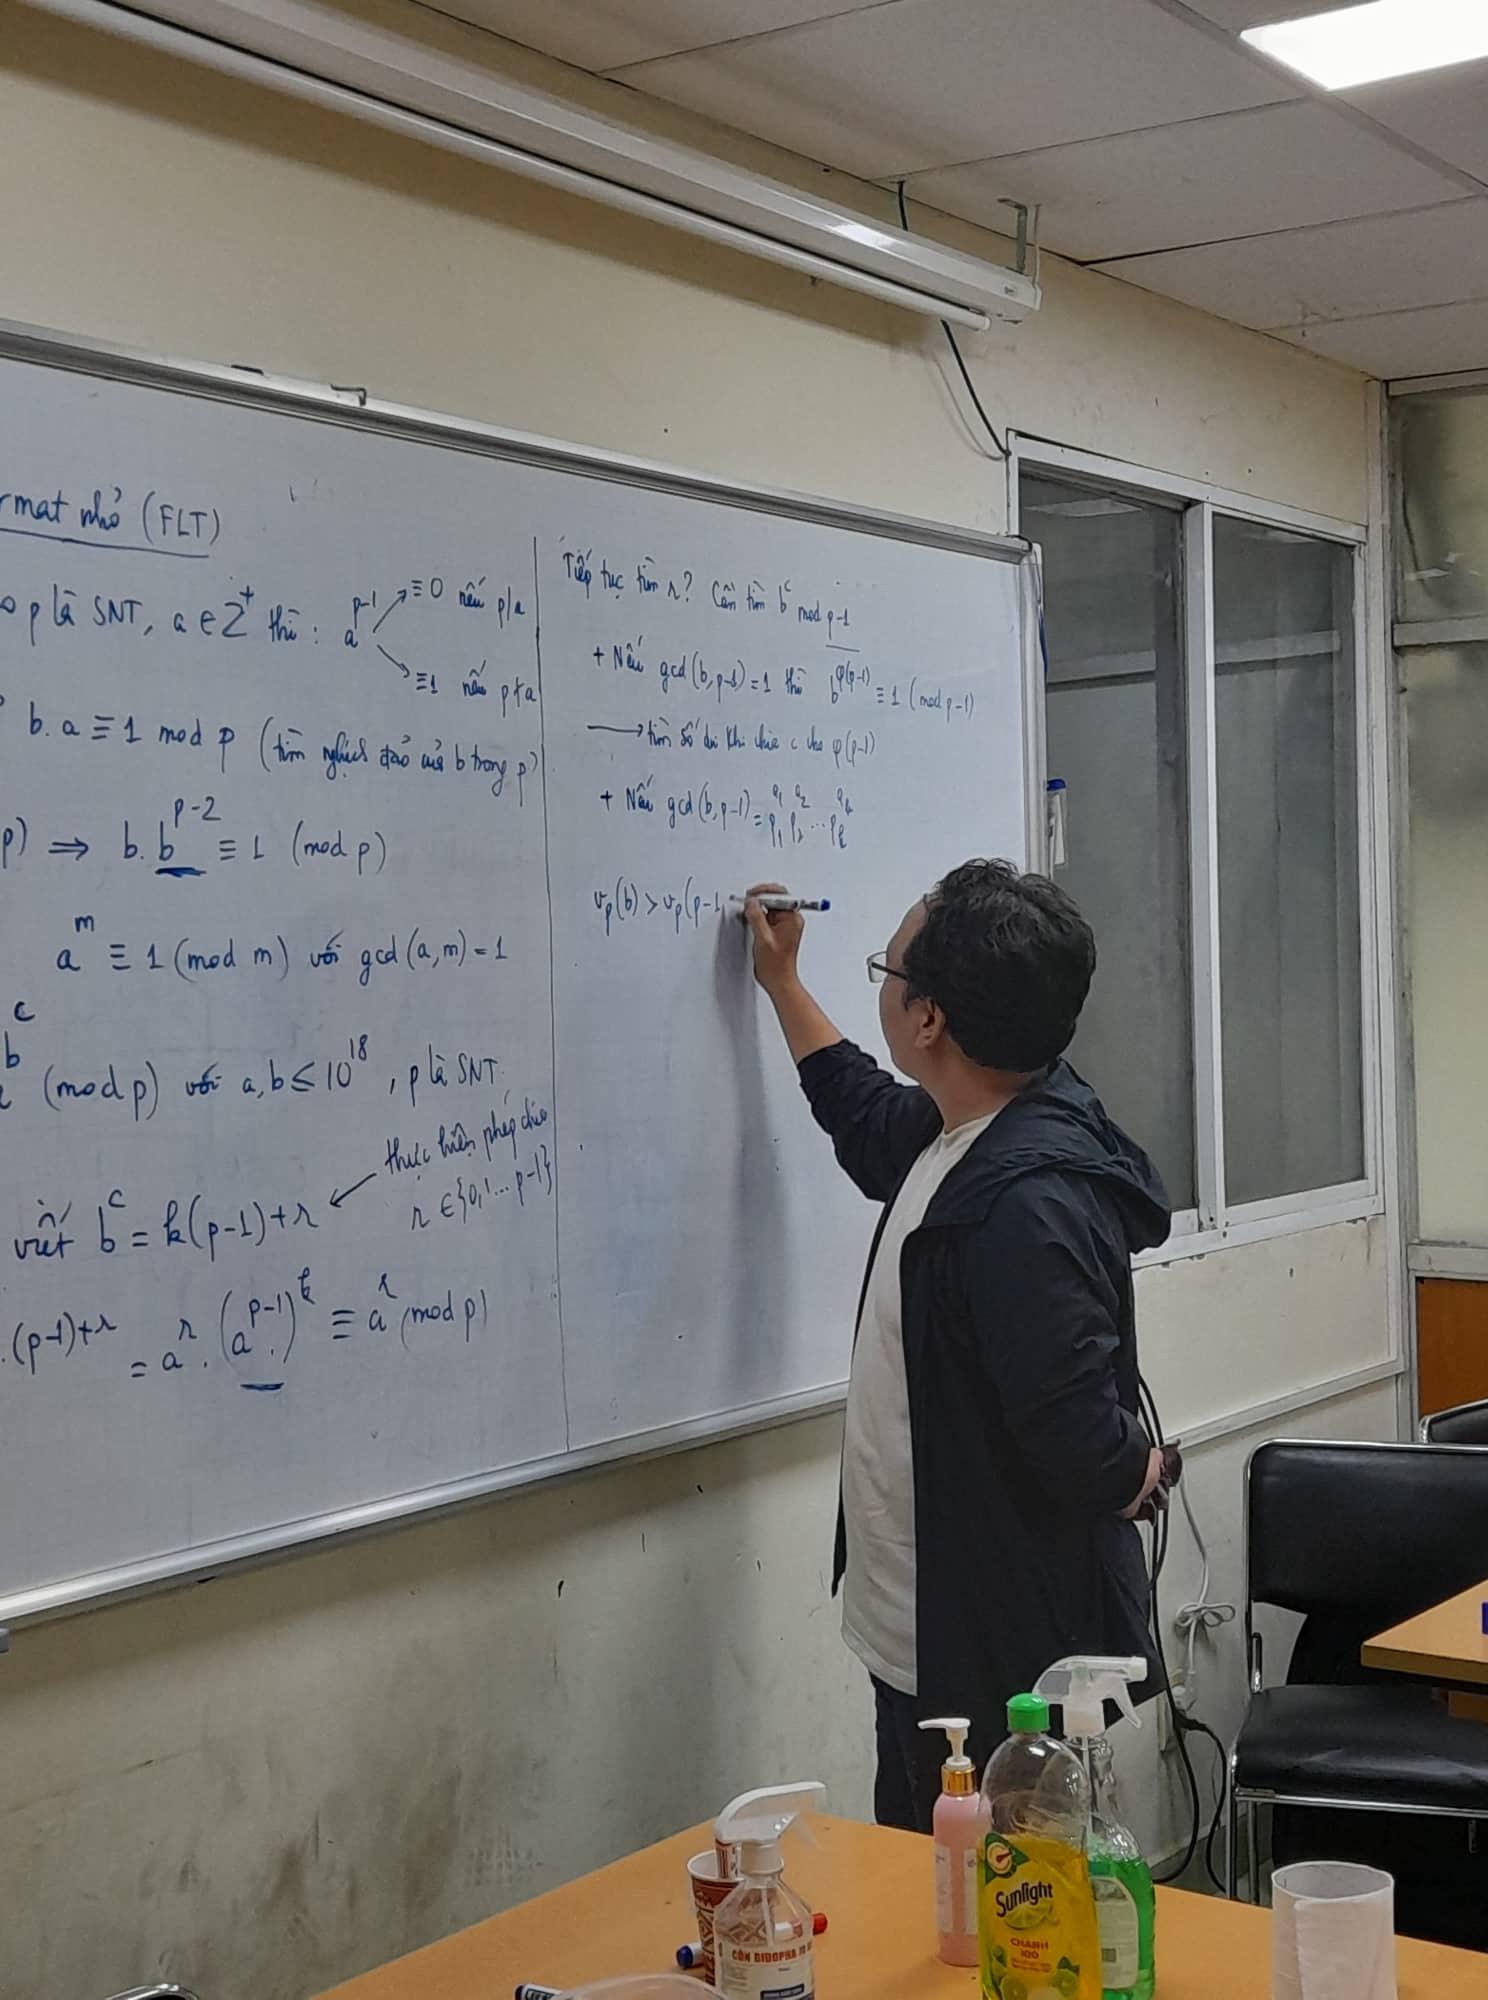 rmat nhỏ (FLT)
p là SNT, a ∈ Z⁺ thì : a^(p-1) ≡ 0 nếu p|a
≡ 1 nếu p∤a
b.a ≡ 1 mod p (tìm nghịch đảo của b trong p)
p) ⇒ b.b^(p-2) ≡ 1 (mod p)
a^m ≡ 1 (mod m) với gcd(a,m) = 1
b^c
(mod p) với a,b ≤ 10^18, p là SNT.
thực hiện phép chia
viết b^c = k(p-1)+r ← r ∈ {0,1...p-1}
.(p-1)+r = a^r.(a^(p-1).)^k ≡ a^r (mod p)
Tiếp tục tìm r? Cần tìm b^c mod p-1
+ Nếu gcd(b,p-1)=1 thì b^φ(p-1) ≡ 1 (mod p-1)
→ tìm số dư khi chia c cho φ(p-1)
+ Nếu gcd(b,p-1) = p₁^a₁ p₂^a₂ ... p_k^a_k
v_p(b) > v_p(p-1
Sunlight
CHANH
100
CỒN